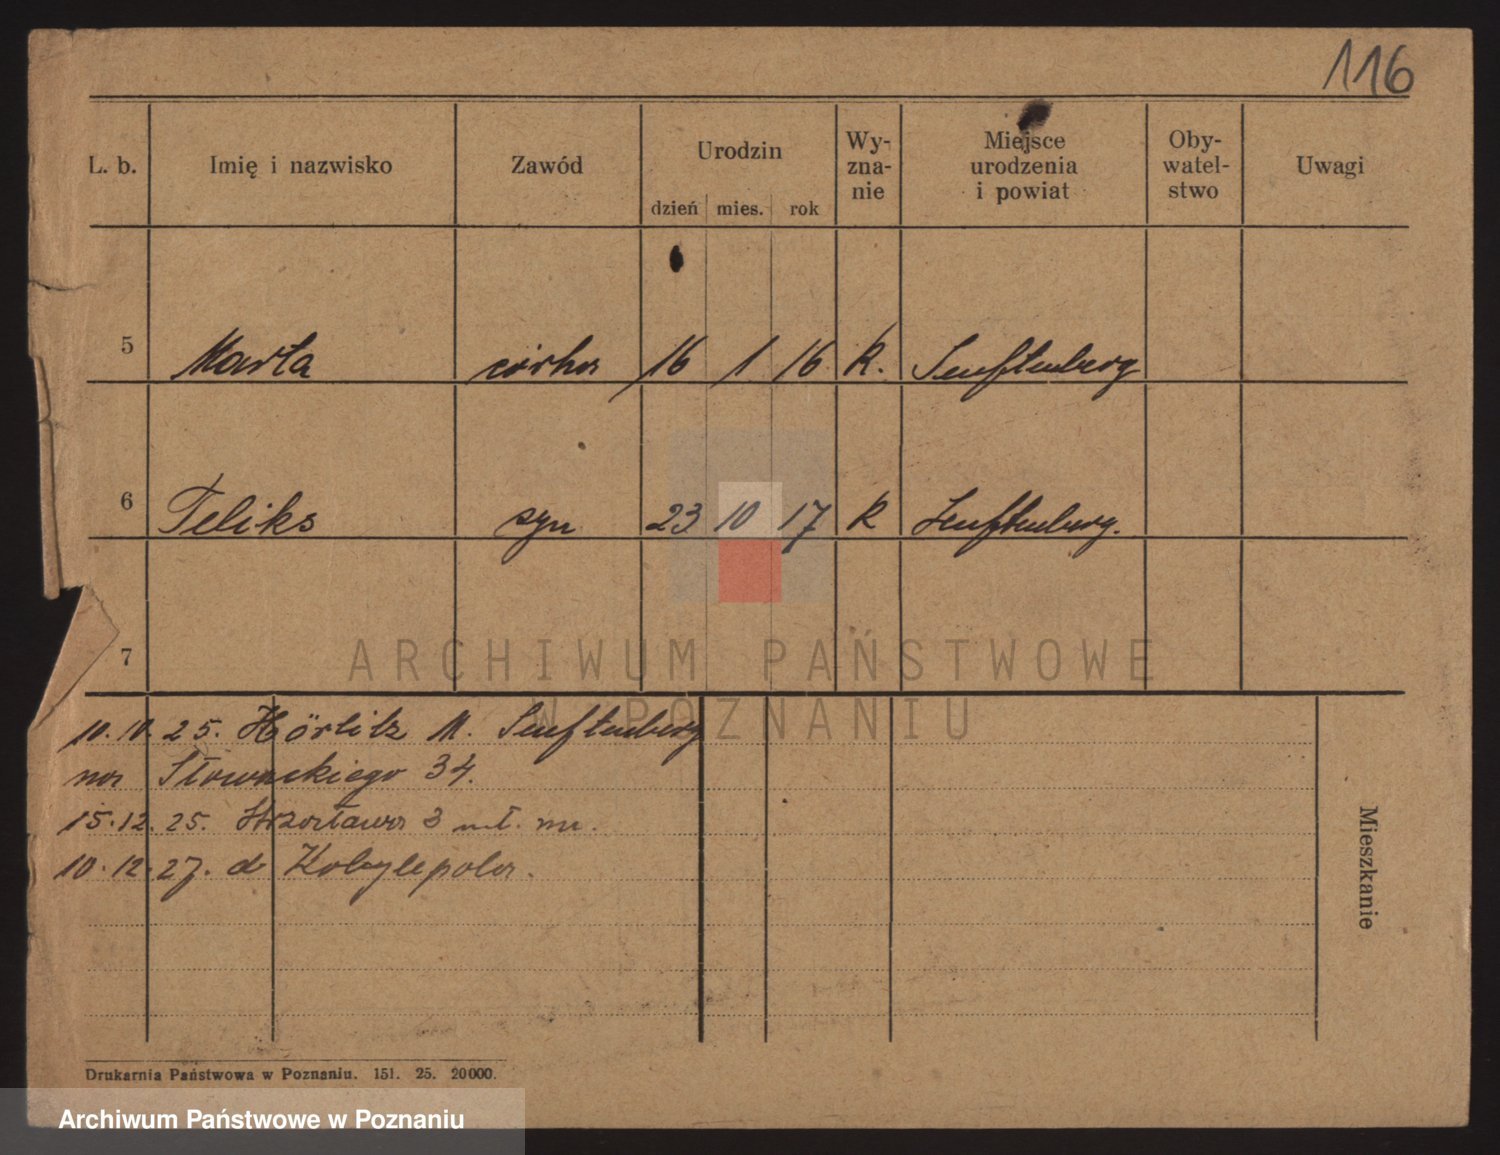 116
L. b. Imię i nazwisko Zawód Urodzin dzień mies. rok Wy-zna-nie Miejsce urodzenia i powiat Oby-watel-stwo Uwagi
5 Marta córka 16 1 16 k. Senftenberg
6 Feliks syn 23 10 17 k Senftenberg.
7
10.10.25. Hörlitz N. Senftenberg
na Słowackiego 34.
15.12.25. Strzałowa 3
10.12.27. do Kobylepola.
Mieszkanie
Drukarnia Państwowa w Poznaniu. 151. 25. 20000.
ARCHIWUM PAŃSTWOWE
W POZNANIU
Archiwum Państwowe w Poznaniu